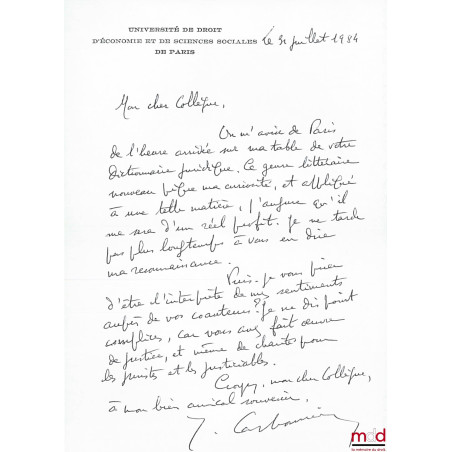 UNIVERSITÉ DE DROIT
D'ÉCONOMIE ET DE SCIENCES SOCIALES
DE PARIS
Le 31 juillet 1984
Mon cher Collègue,
On m'avise de Paris
de l'heure arrivée sur ma table de votre
Dictionnaire juridique. Ce genre littéraire
nouveau pique ma curiosité, et appliqué
à une telle matière, j'augure qu'il
me sera d'un réel profit. Je ne tarde
pas plus longtemps à vous en dire
ma reconnaissance.
Puis-je vous prier
d'être l'interprète de mes sentiments
auprès de vos coauteurs? Je ne dis point
complices, car vous avez fait œuvre
de justice, et même de charité pour
les juristes et les justiciables.
Croyez, mon cher Collègue,
à mon bien amical souvenir,
J. Carbonnier
mdd
la mémoire du droit